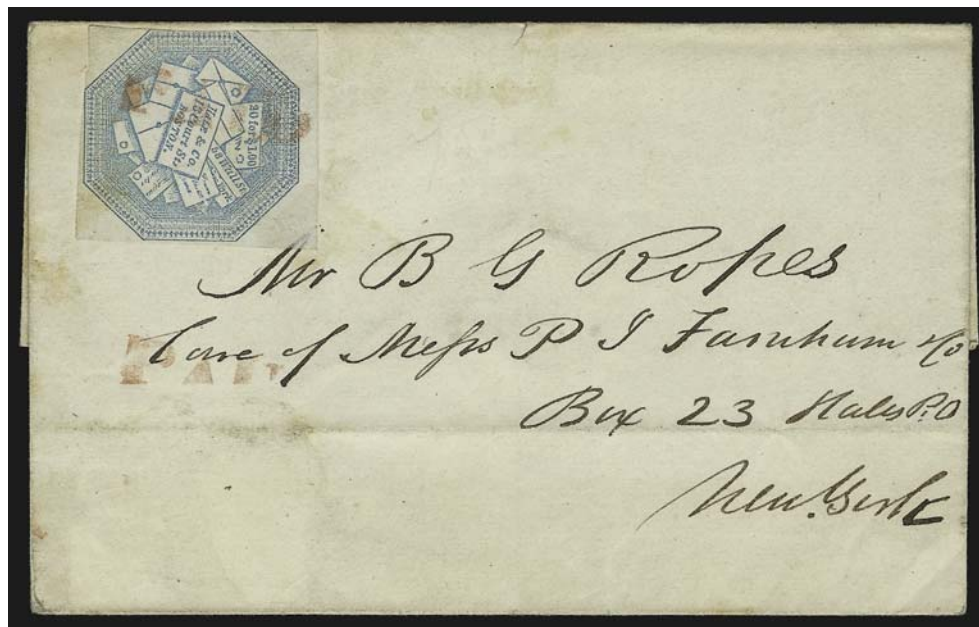 Hale & Co.
13 Court St.
BOSTON.
20 for $1.00
Mr B G Ropes
Care of Mefsrs P I Farnhum & Co
Box 23 Hales P.O
New. York
PAID